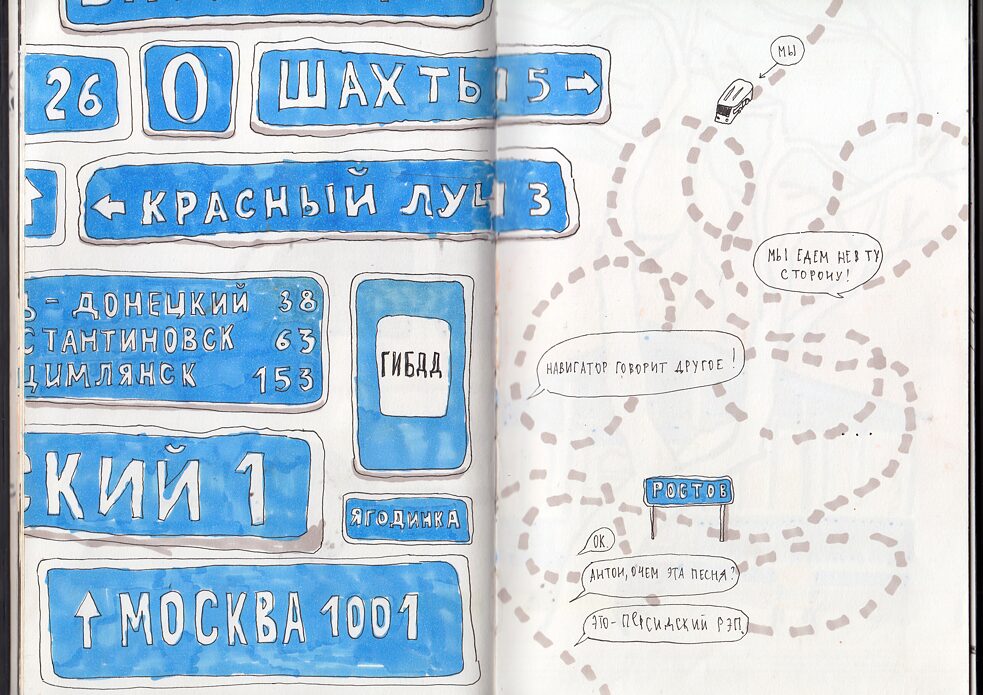 26
0
ШАХТЫ 15 →
↑
← КРАСНЫЙ ЛУЧ 3
Ь - ДОНЕЦКИЙ 38
СТАНТИНОВСК 63
ЦИМЛЯНСК 153
ГИБДД
СКИЙ 1
ЯГОДИНКА
↑ МОСКВА 1001
МЫ
МЫ ЕДЕМ НЕ В ТУ
СТОРОНУ!
НАВИГАТОР ГОВОРИТ ДРУГОЕ!
...
РОСТОВ
ОК
АНТОН, О ЧЕМ ЭТА ПЕСНЯ?
ЭТО - ПЕРСИДСКИЙ РЭП.